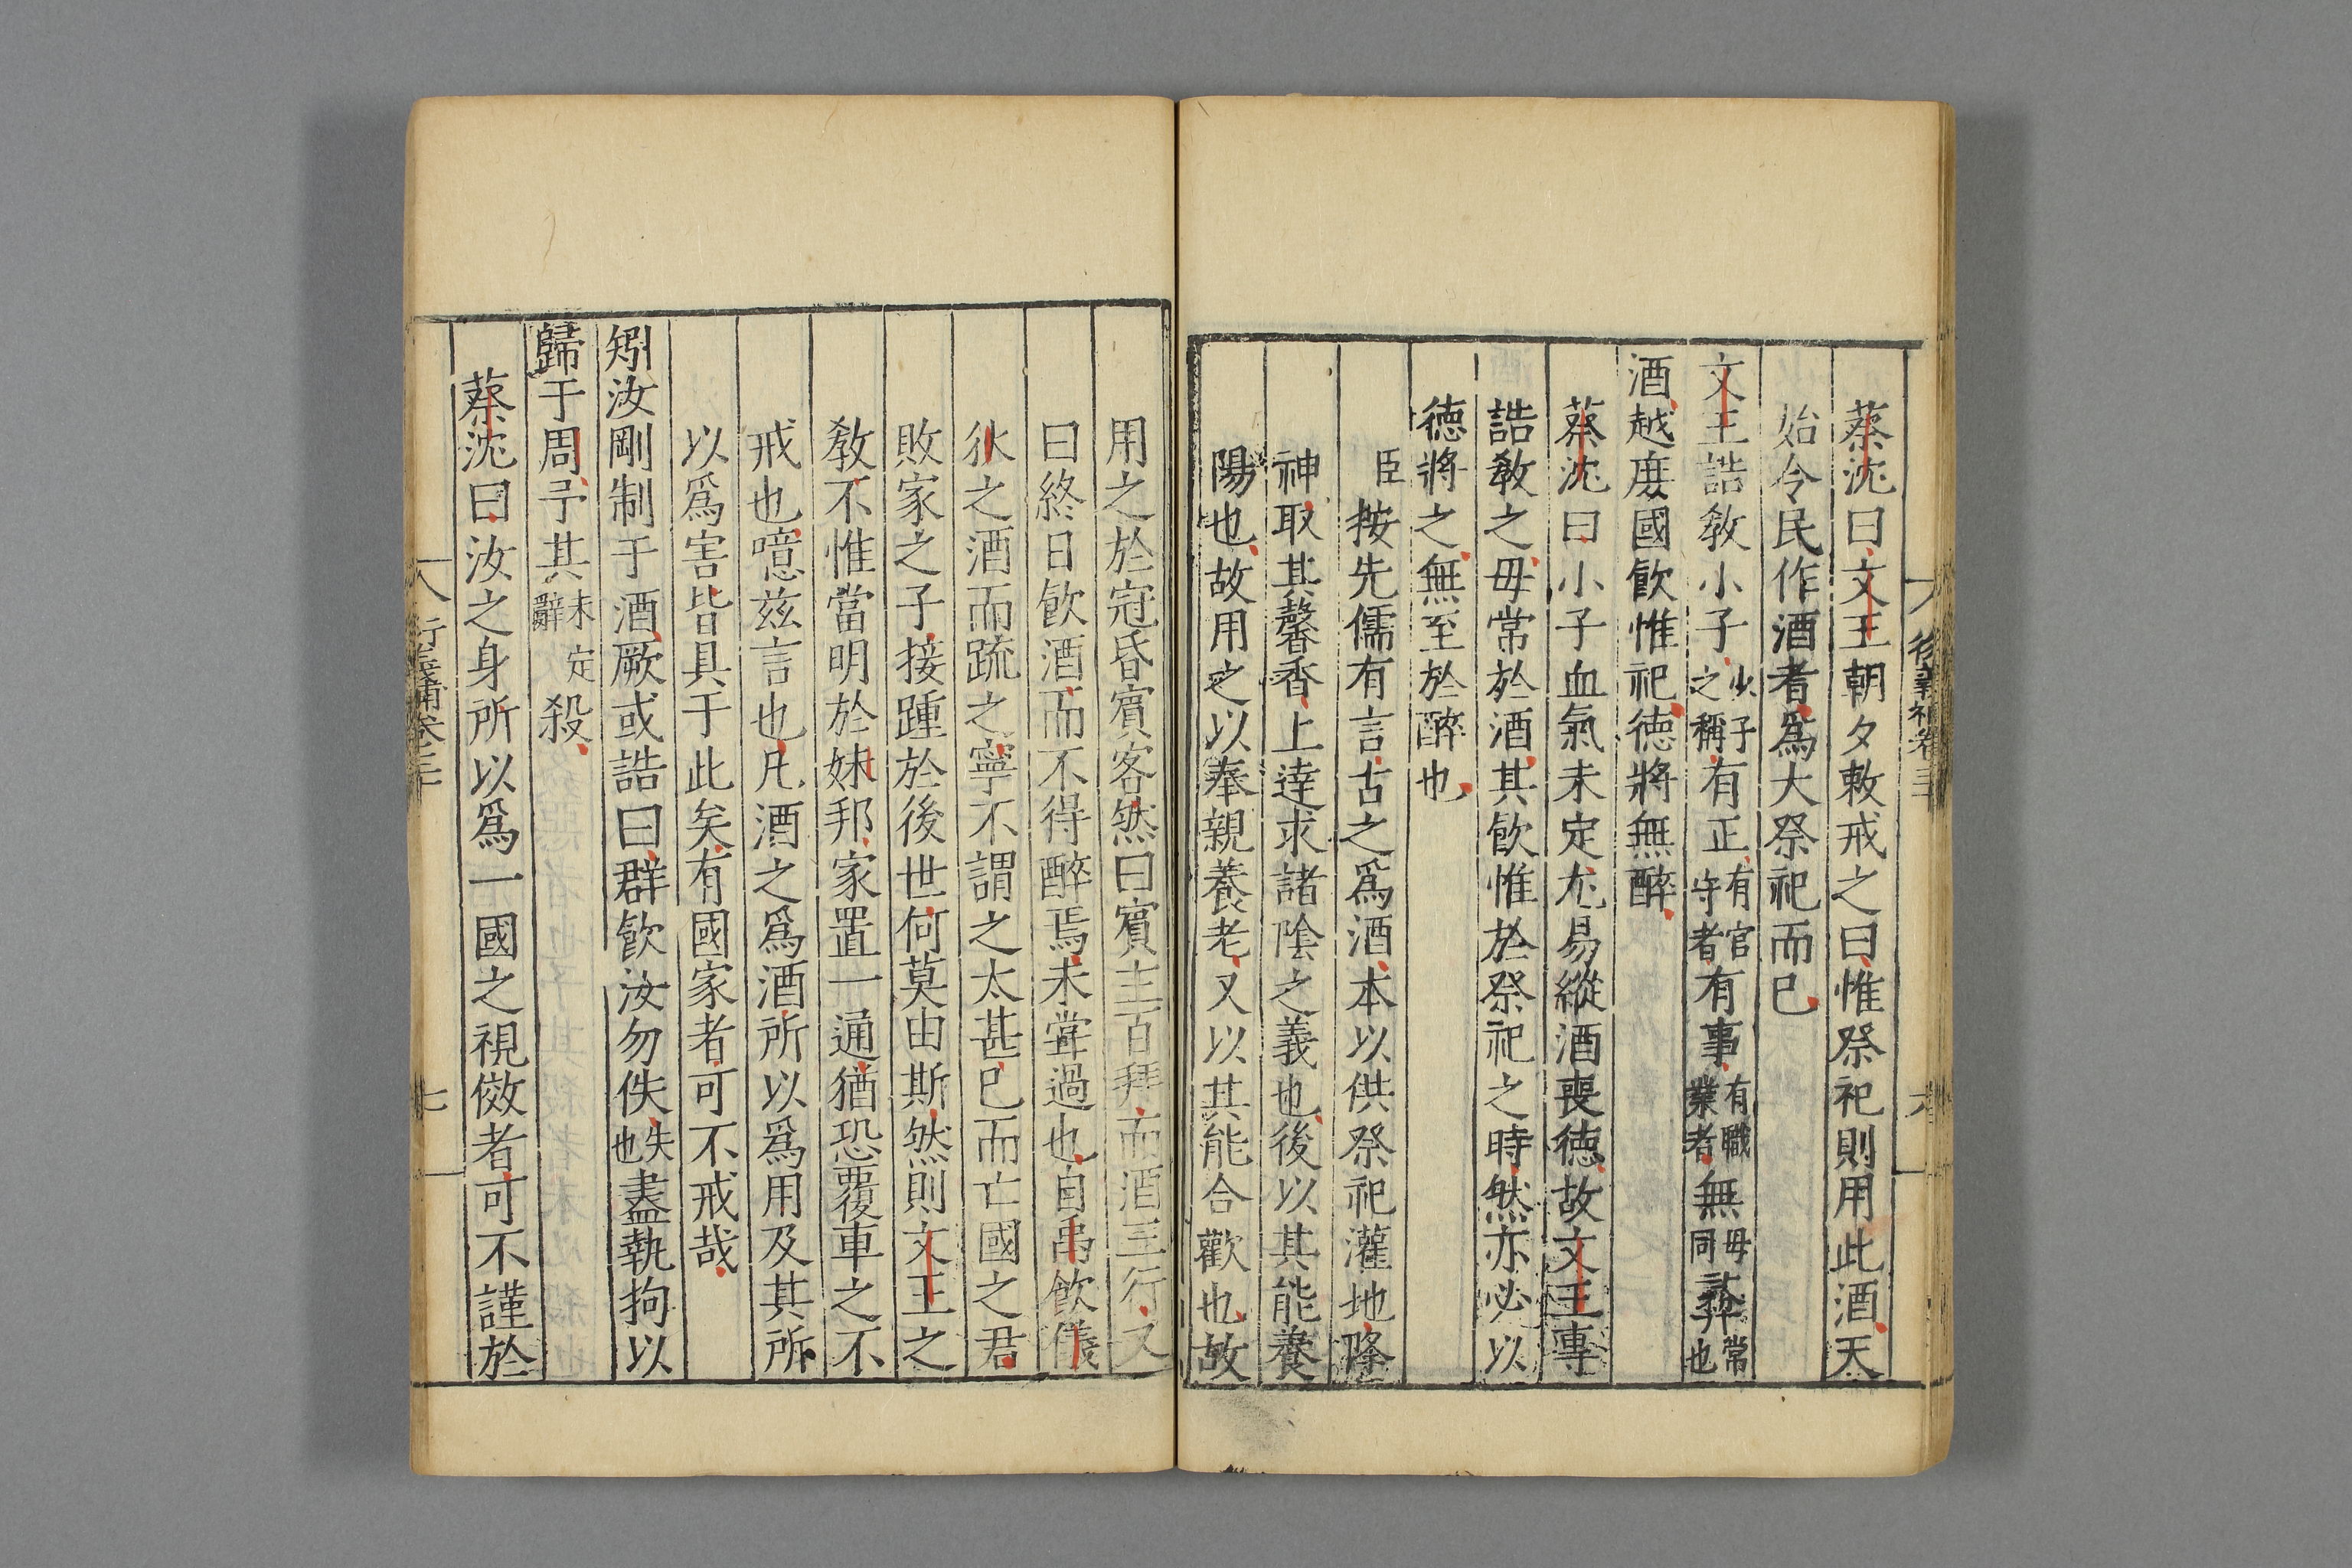 蔡沈曰文王朝夕敕戒之曰惟祭祀則用此酒天
始令民作酒者爲大祭祀而已
文王誥敎小子少子之稱有正有官守者有事有職業者無毋同彞常也
酒越庶國飮惟祀德將無醉
蔡沈曰小子血氣未定尢易縱酒喪德故文王專
誥敎之毋常於酒其飮惟於祭祀之時然亦必以
德將之無至於醉也
臣按先儒有言古之爲酒本以供祭祀灌地降
神取其馨香上達求諸陰之義也後以其能養
陽也故用之以奉親養老又以其能合歡也故
用之於冠昏賓客然曰賓主百拜而酒三行又
曰終日飮酒而不得醉焉未甞過也自禹飮儀
狄之酒而疏之寧不謂之太甚已而亡國之君
敗家之子接踵於後世何莫由斯然則文王之
敎不惟當明於妹邦家置一通猶恐覆車之不
戒也噫茲言也凡酒之爲酒所以爲用及其所
以爲害皆具于此矣有國家者可不戒哉
矧汝剛制于酒厥或誥曰群飮汝勿佚失也盡執拘以
歸于周予其未定辭殺
蔡沈曰汝之身所以爲一國之視傚者可不謹於
衍義補卷三十
六
七